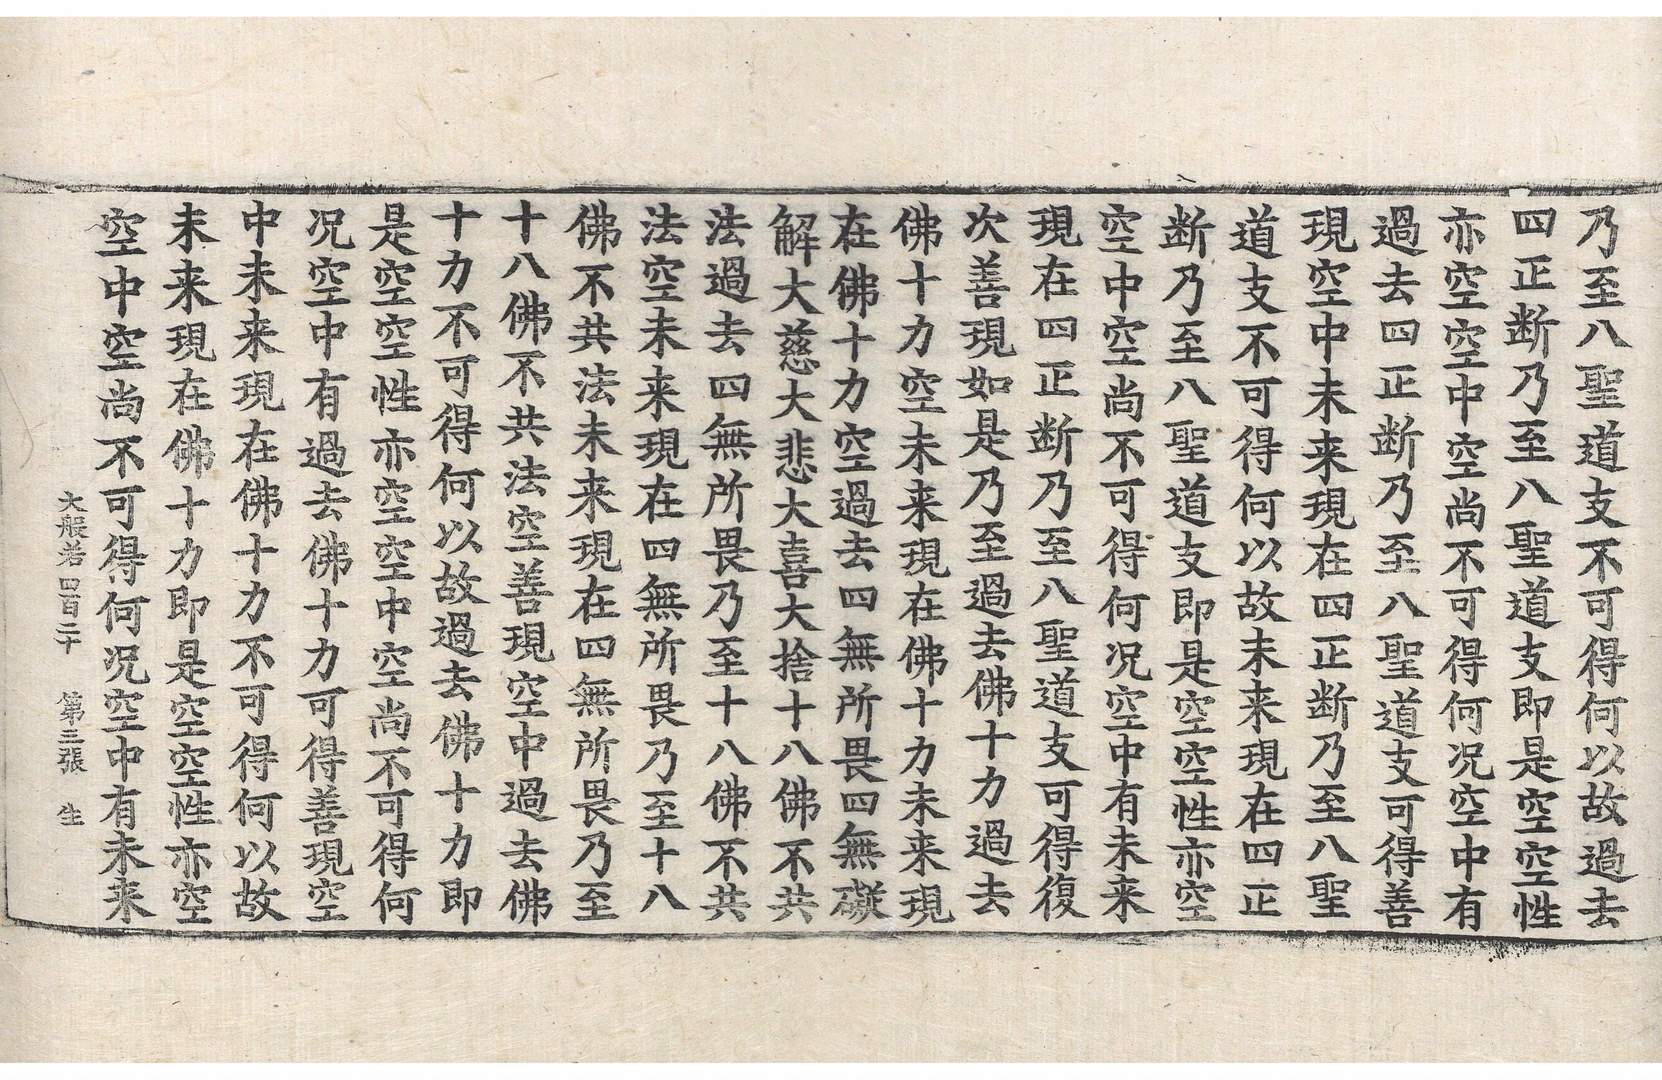 乃至八聖道支不可得何以故過去
四正断乃至八聖道支即是空空性
亦空空中空尚不可得何况空中有
過去四正断乃至八聖道支可得善
現空中未来現在四正断乃至八聖
道支不可得何以故未来現在四正
断乃至八聖道支即是空空性亦空
空中空尚不可得何况空中有未来
現在四正断乃至八聖道支可得復
次善現如是乃至過去佛十力過去
佛十力空未来現在佛十力未来現
在佛十力空過去四無所畏四無礙
解大慈大悲大喜大捨十八佛不共
法過去四無所畏乃至十八佛不共
法空未来現在四無所畏乃至十八
佛不共法未来現在四無所畏乃至
十八佛不共法空善現空中過去佛
十力不可得何以故過去佛十力即
是空空性亦空空中空尚不可得何
况空中有過去佛十力可得善現空
中未来現在佛十力不可得何以故
未来現在佛十力即是空空性亦空
空中空尚不可得何况空中有未来
大般若四百二十 第三張 生